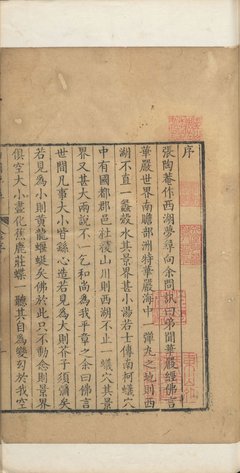 序
張陶菴作西湖夢尋向余問訊曰弟聞華嚴經佛言
華嚴世界南瞻部洲特華嚴海中一彈丸之地則西
湖不直一蠡殼水其景界甚小湯若士傳南柯蟻穴
中有國都郡邑社稷山川則西湖不止一蟻穴其景
界又甚大兩說不一乞和尚為我平章之余曰佛言
世間凡事大小皆繇心造若見為大則芥子須彌矣
若見為小則黃龍蝘蜓矣佛於此只不動念則景界
俱空大小盡化蕉鹿莊蝶一聽其自為變幻於我空